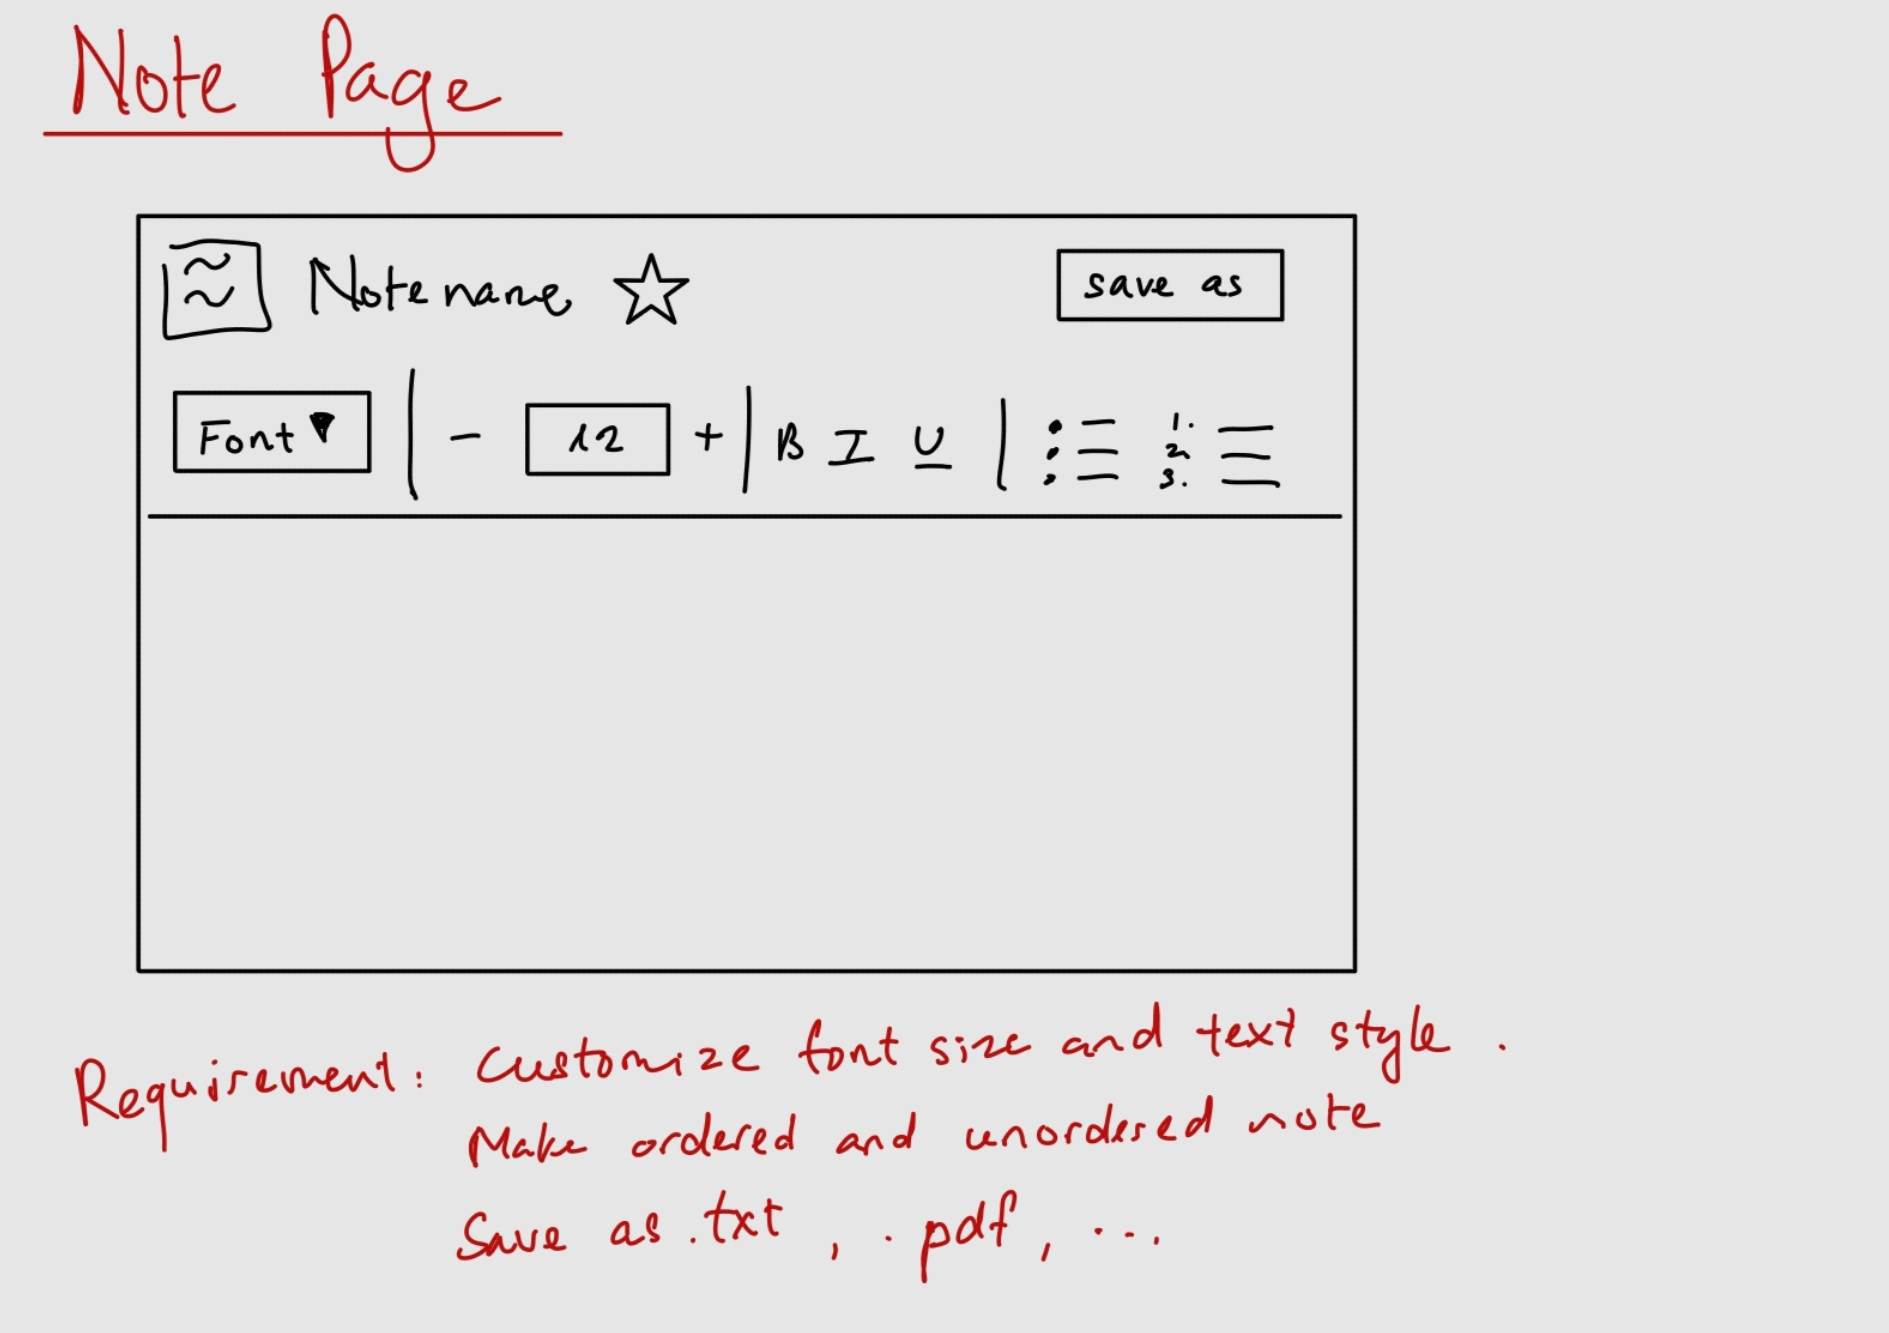 Note Page
Note name
save as
Font
- 12 + B I U
1.
2.
3.
Requirement: Customize font size and text style.
Make ordered and unordered note
Save as .txt, .pdf, ...